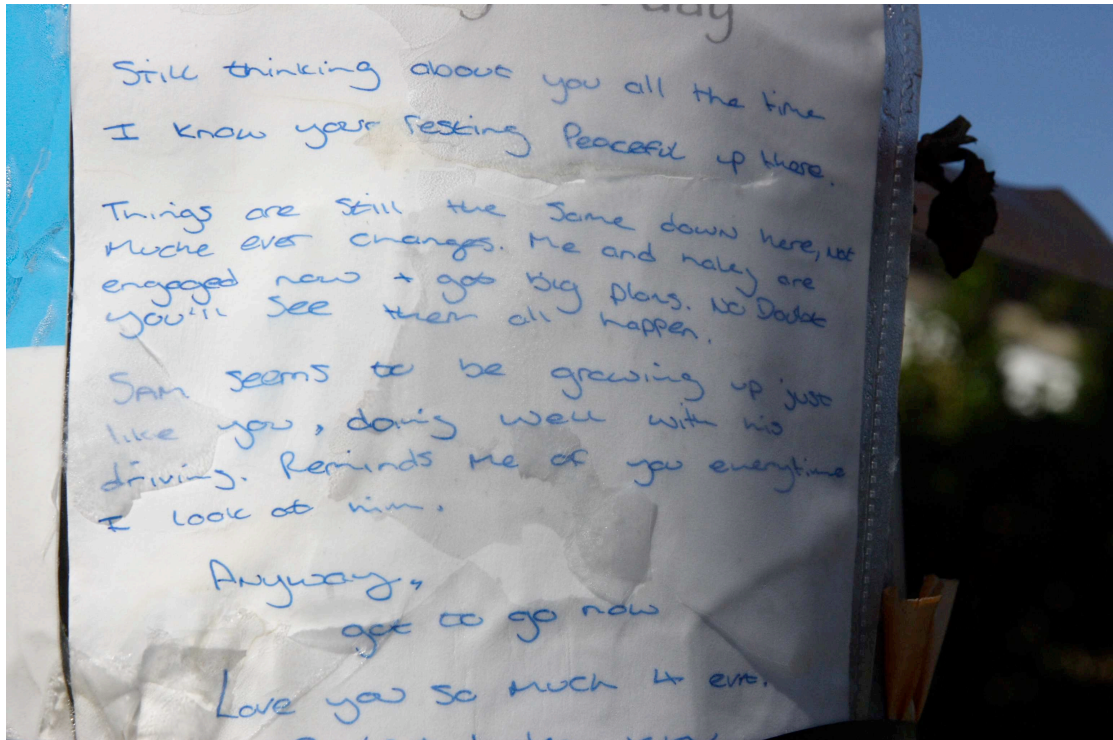 day
Still thinking about you all the time
I know your resting Peaceful up there.
Things are still the same down here, not
Muche ever changes. Me and are
engaged now + got big plans. No Doubt
you'll see them all happen.
Sam seems to be growing up just
like you, doing well with his
driving. Reminds me of you everytime
I look at him.
Anyway,
got to go now
Love you so much 4 ever.